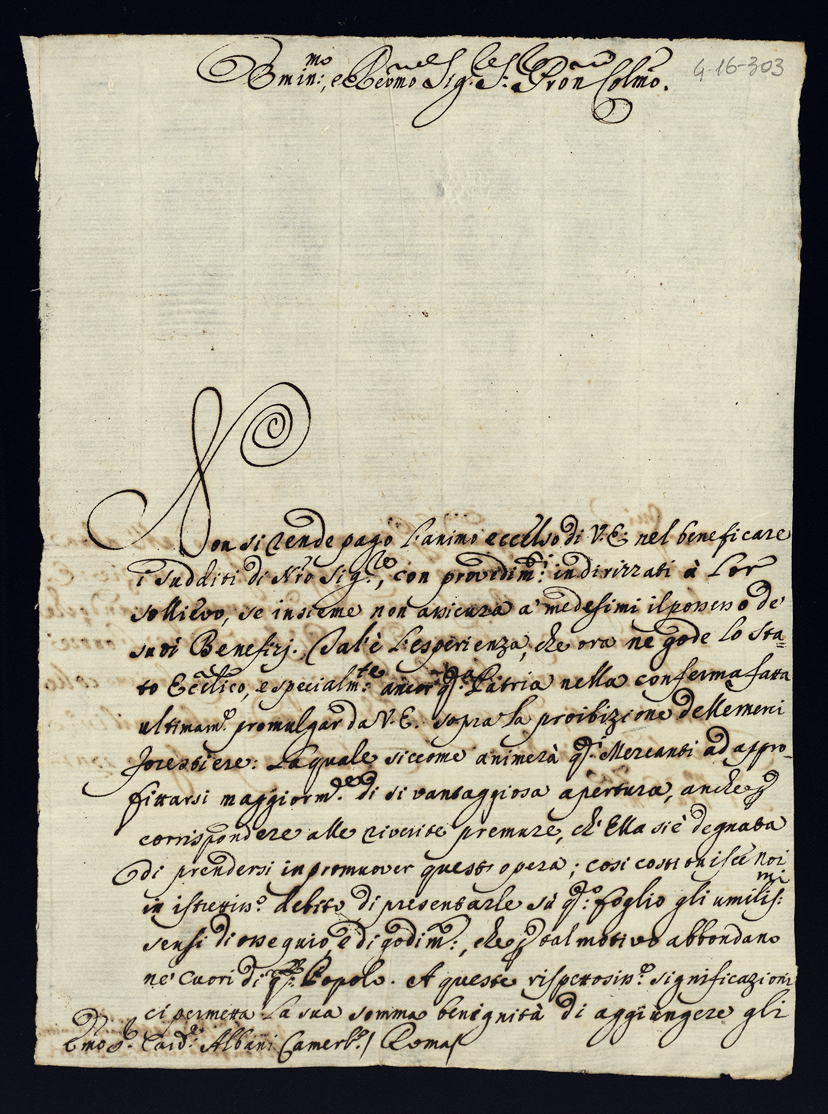 Emin:mo, e Revmo Sig:re Sig:re Pron Colmo.
4-16-303
Non si rende pago l'animo eccelso di V.E. nel beneficare
i sudditi di Nro Sig:re, con providim:ti indirizzati à Lor
sollievo, se insieme non assicura a' medesimi il possesso de'
suoi Benefizj. Tal'è l'esperienza, che ora ne gode lo Sta=
to Eccl:ico, e specialm:te ancor q:sta Patria nella conferma fatta
ultimam:e promulgar da V.E. sopra la proibizione delle merci
forestiere: La quale siccome animerà q:sti Mercanti ad appro=
fittarsi maggiorm:te di sì vantaggiosa apertura, anche p
corrispondere alle riverite premure, ch'Ella si è degnata
di prendersi in promuover quest'opera; così costituisce noi
in istrettiss:o debito di presentarle sù q:sto foglio gli umilis:mi
sensi di ossequio, e di godim:to, che p tal motivo abbondano
ne' Cuori di q:sto Popolo. A queste rispettosiss:e significazioni
ci permetta la sua somma benignità di aggiungere gli
Emo S:r Card:e Albani Camerl:o / Roma /